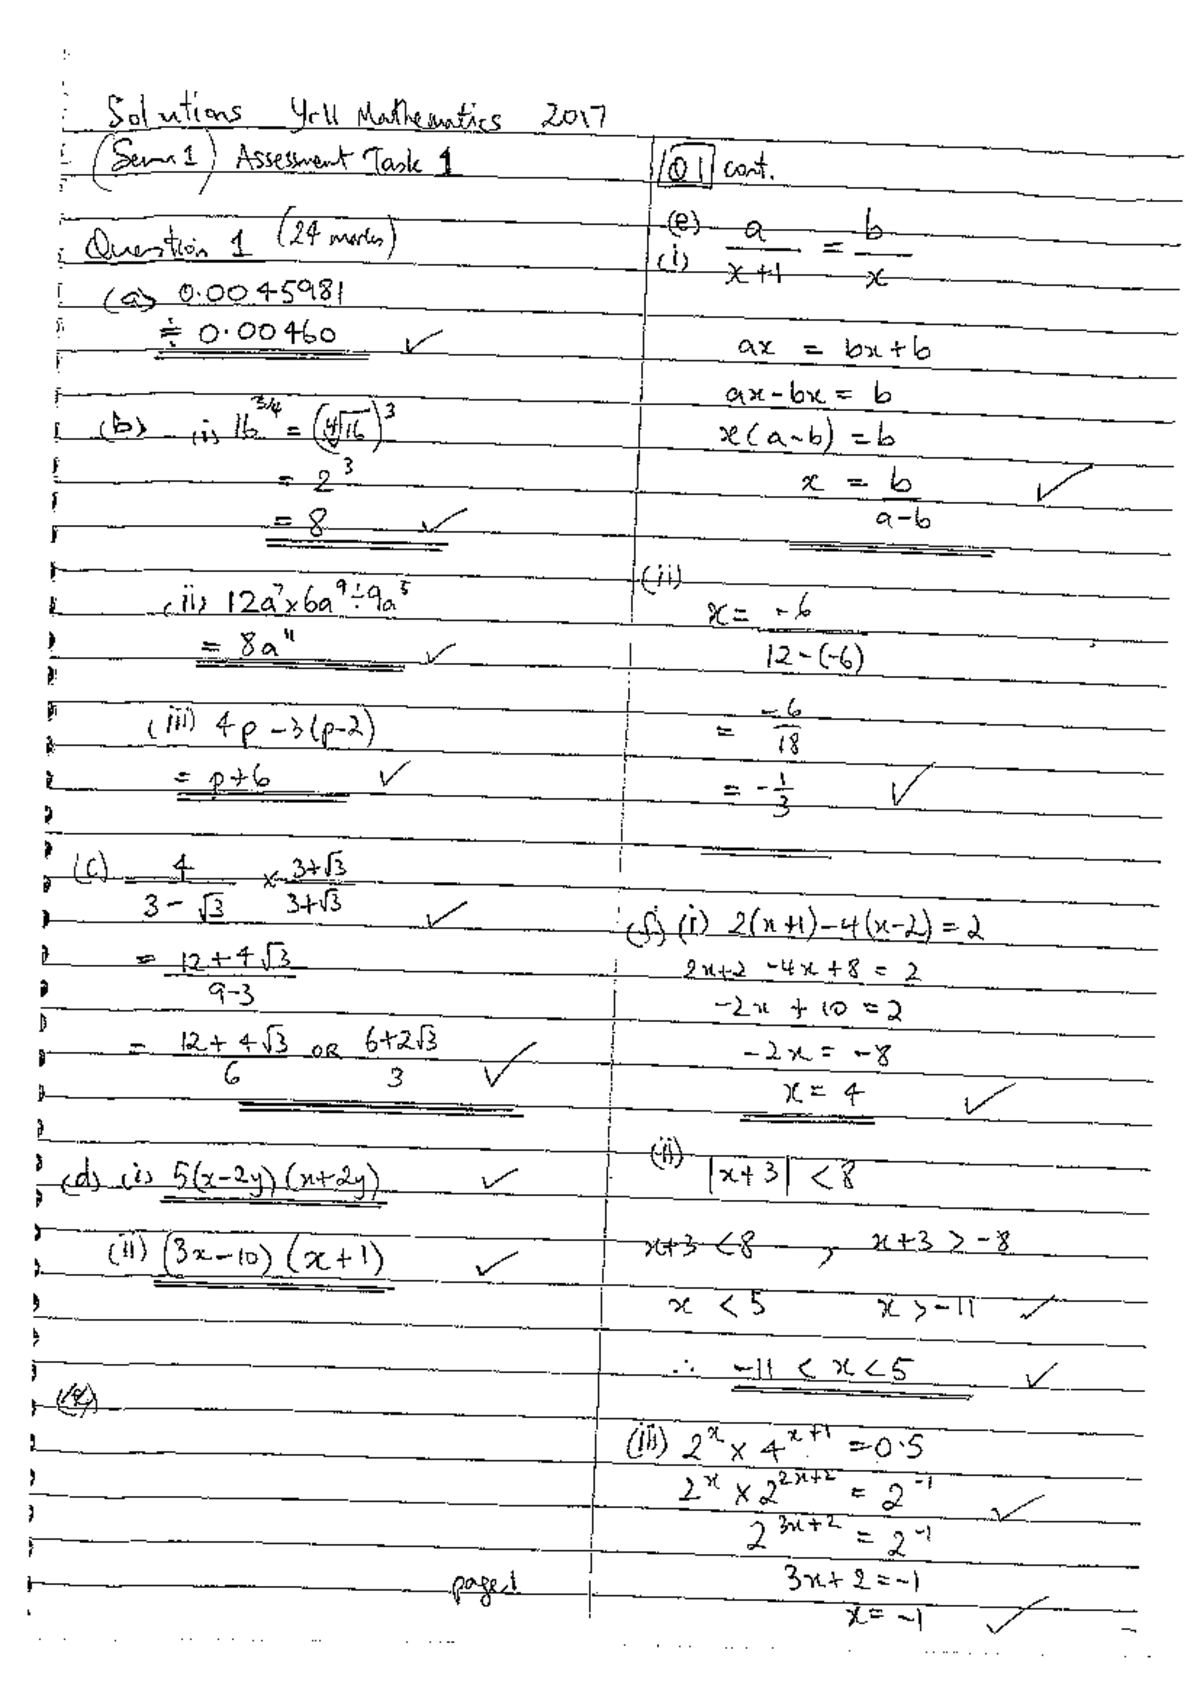 Solutions Yr11 Mathematics 2017
(Sem 1) Assessment Task 1
Question 1 (24 marks)
(a) 0.0045981
≑ 0.00460 ✓
(b) (i) 16^(3/4) = (∜16)^3
= 2^3
= 8 ✓
(ii) 12a^7 × 6a^9 ÷ 9a^5
= 8a^11 ✓
(iii) 4p - 3(p-2)
= p+6 ✓
(c) 4/(3 - √3) × (3+√3)/(3+√3) ✓
= (12+4√3)/(9-3)
= (12+4√3)/6 OR (6+2√3)/3 ✓
(d) (i) 5(x-2y)(x+2y) ✓
(ii) (3x-10)(x+1) ✓
page 1
Q1 cont.
(e)
(i) a/(x+1) = b/x
ax = bx+b
ax-bx = b
x(a-b) = b
x = b/(a-b) ✓
(ii)
x = -6/(12-(-6))
= -6/18
= -1/3 ✓
(f) (i) 2(x+1)-4(x-2) = 2
2x+2-4x+8 = 2
-2x + 10 = 2
-2x = -8
x = 4 ✓
(ii) |x+3| < 8
x+3 < 8 , x+3 > -8
x < 5 x > -11 ✓
∴ -11 < x < 5 ✓
(iii) 2^x × 4^(x+1) = 0.5
2^x × 2^(2x+2) = 2^-1 ✓
2^(3x+2) = 2^-1
3x+2 = -1
x = -1 ✓